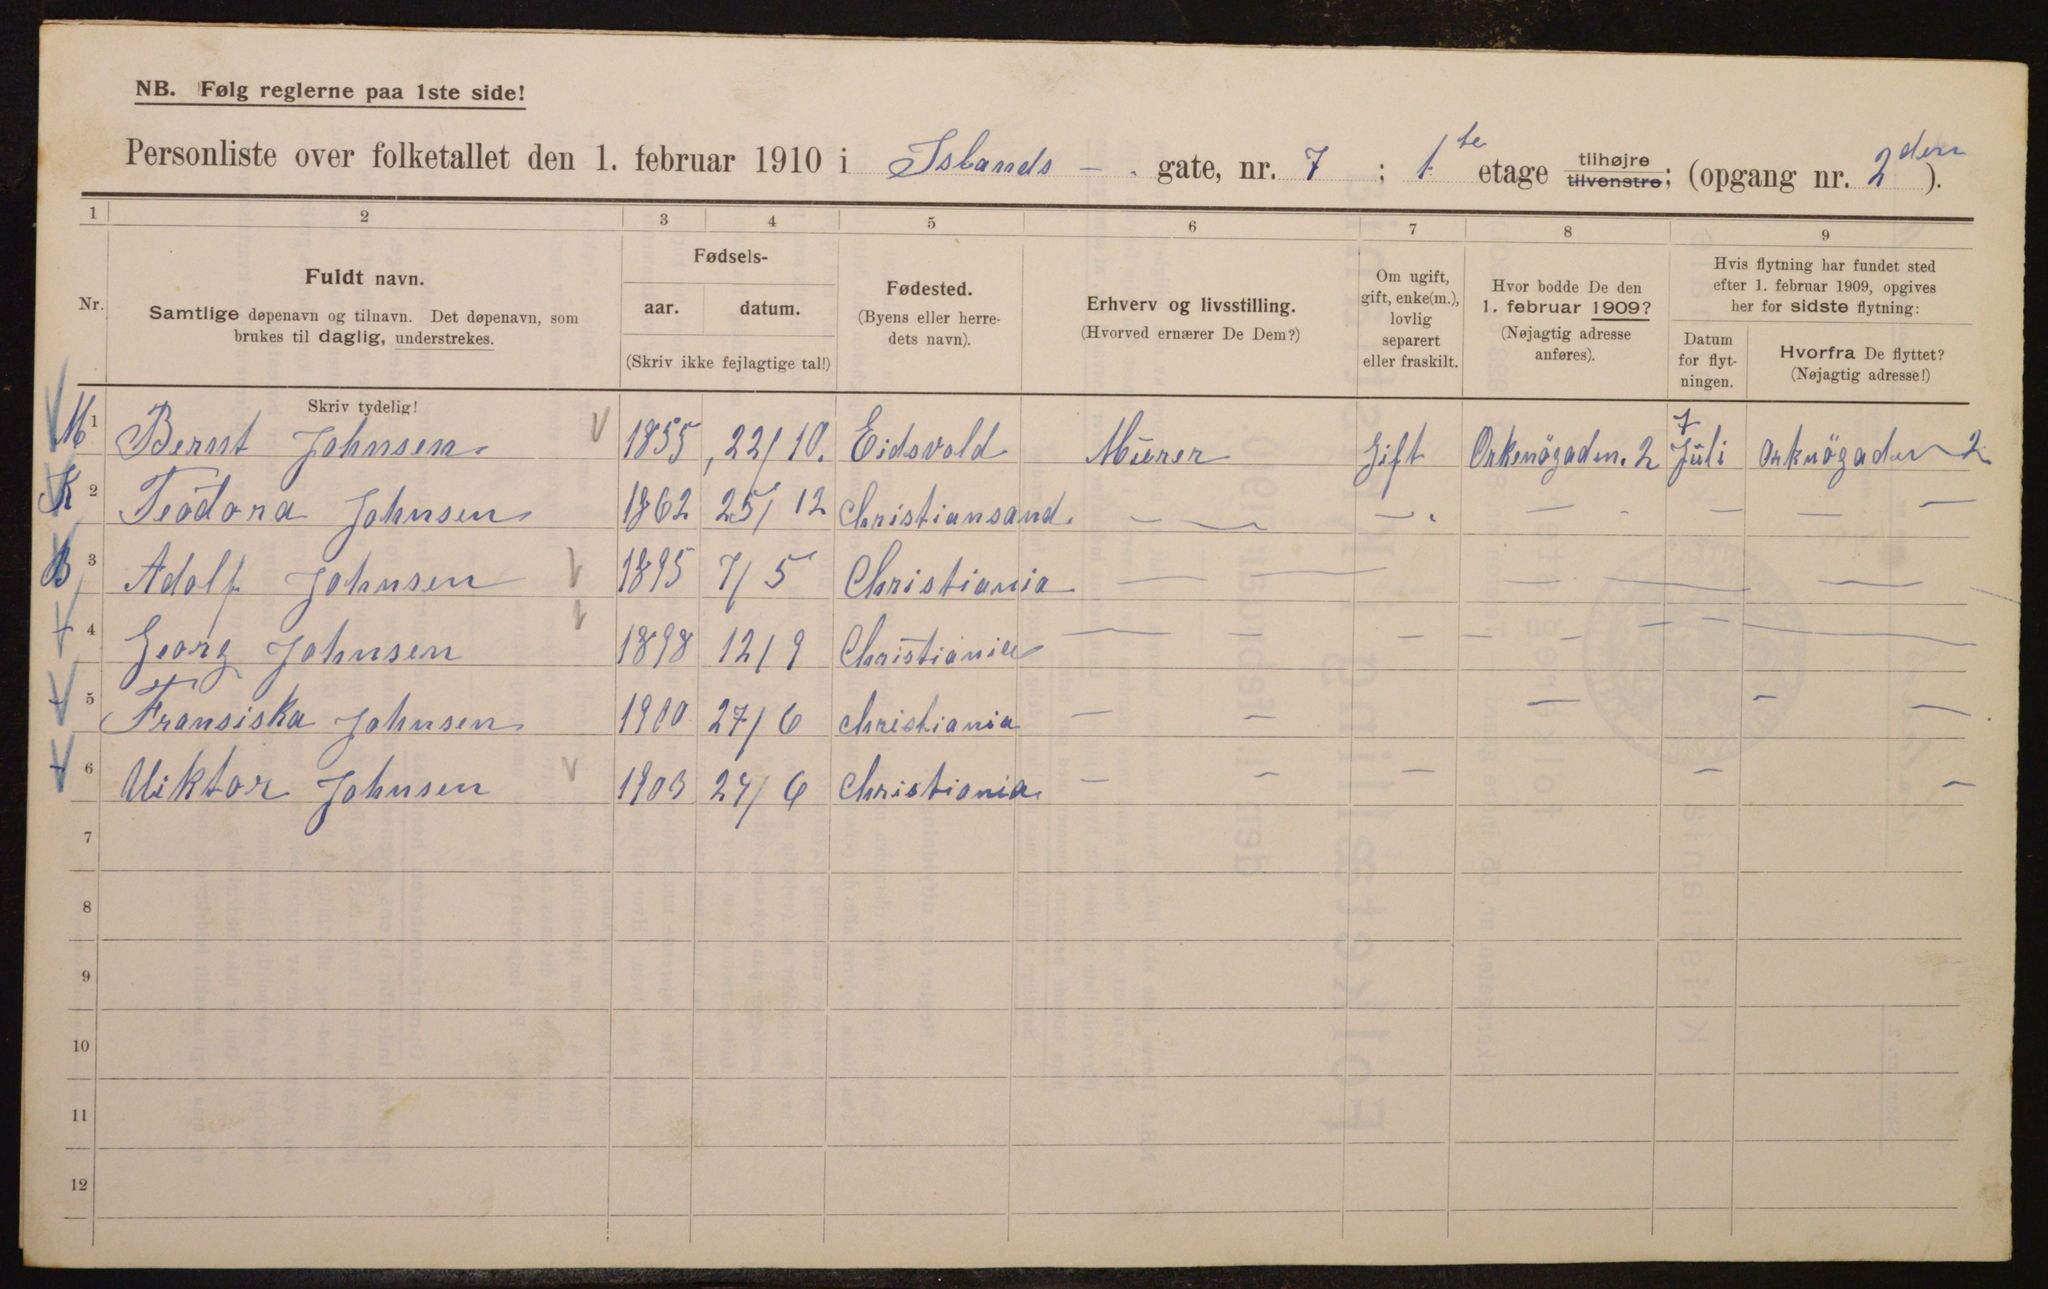 NB. Følg reglerne paa 1ste side!
Personliste over folketallet den 1. februar 1910 i Islands - gate, nr. 7 ; 1. te etage tilhøjre tilvenstre; (opgang nr. 2 den ).
1 2 3 4 5 6 7 8 9
Nr.
Fuldt navn.
Samtlige døpenavn og tilnavn. Det døpenavn, som
brukes til daglig, understrekes.
Skriv tydelig!
Fødsels-
aar. datum.
(Skriv ikke fejlagtige tal!)
Fødested.
(Byens eller herre-
dets navn).
Erhverv og livsstilling.
(Hvorved ernærer De Dem?)
Om ugift,
gift, enke(m.),
lovlig
separert
eller fraskilt.
Hvor bodde De den
1. februar 1909?
(Nøjagtig adresse
anføres).
Hvis flytning har fundet sted
efter 1. februar 1909, opgives
her for sidste flytning:
Datum
for flyt-
ningen.
Hvorfra De flyttet?
(Nøjagtig adresse!)
M 1 Bernt Johnsen 1855 22/10. Eidsvold Murer Gift Orkenögaden. 2 7 Juli Orknögaden 2
K 2 Teodora Johnsen 1862 25/12 Christiansand. — — — — — —
B 3 Adolf Johnsen 1895 7/5 Christiania — — — — —
4 Georg Johnsen 1898 12/9 Christiania — — — — — — —
5 Fransiska Johnsen 1900 27/6 Christiania — — — — —
6 Viktor Johnsen 1903 27/6 Christiania — — — — —
7
8
9
10
11
12